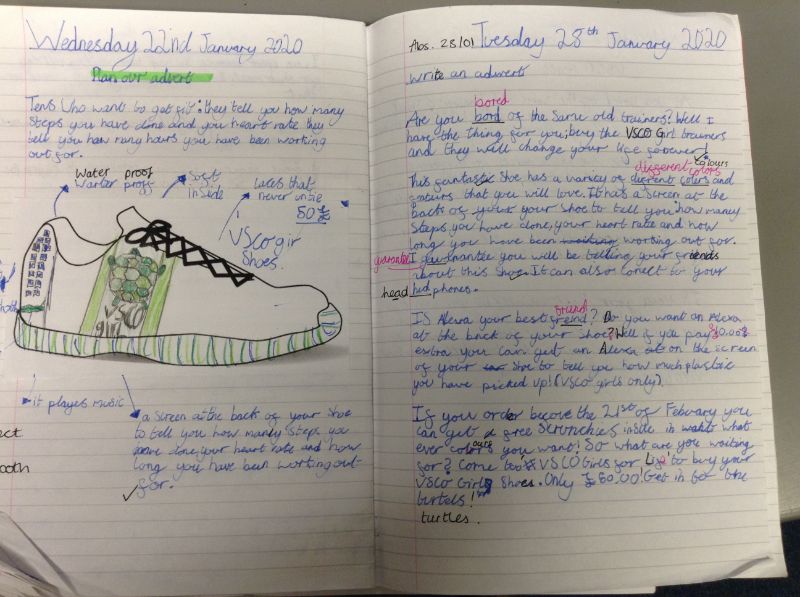 Wednesday 22nd January 2020
Plan our advert
Tens who want to get fit: they tell you how many
steps you have done and you heart rate they
tell you how many hours you have been working
out for.
Water proof
Warter proff
soft
inside
laces that
never untie
50 £
VSCO gir
shoes.
VSCO
girl
it playes music
a screen at the backs of your shoe
to tell you how many steps you
have done, your heart rate and how
long you have been working out
for.
ect
ooth
Abs. 28/01 Tuesday 28th January 2020
Write an advert
bored
Are you bord of the same old trainers? Well I
have the thing for you; buy the VSCO Girl trainers
and they will change your life forever!
colours
different colors
This fantastic shoe has a variety of diffrent colors and
colours that you will love. It has a screen at the
backs of your your shoe to tell you: how many
steps you have done, your heart rate and how
long you have been working out for.
garantee
I guarantee you will be telling your friends
about this shoe. It can also conect to your
head
hed phones.
friend
Is Alexa your best freind? Do you want an Alexa
at the back of your shoe? Well if you pay £10.00
extra you can get an Alexa on the screen
of your shoe to tell you how much plastic
you have picked up! (VSCO girls only).
If you order before the 21st of Febuary you
can get a free scrunchies inside in what
ours
ever colors you want! So what are you waiting
for? Come to 'VSCO Girls for Life' to buy your
VSCO Girls shoes. Only £50.00! Get in for the
turtels!
turtles.